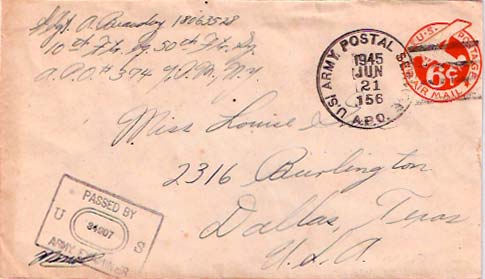 Sgt. A. Beardsley 18063528
10th Ftr. Sq. 50th Ftr. Gp.
A.P.O. # 374 P.M., N.Y.
U.S. ARMY POSTAL SE
1945
JUN
21
156
A.P.O.
U.S. POSTAGE
6¢
AIR MAIL
Miss Louise
2316 Burlington
Dallas, Texas
U.S.A.
PASSED BY
U 34907 S
ARMY EXAMINER